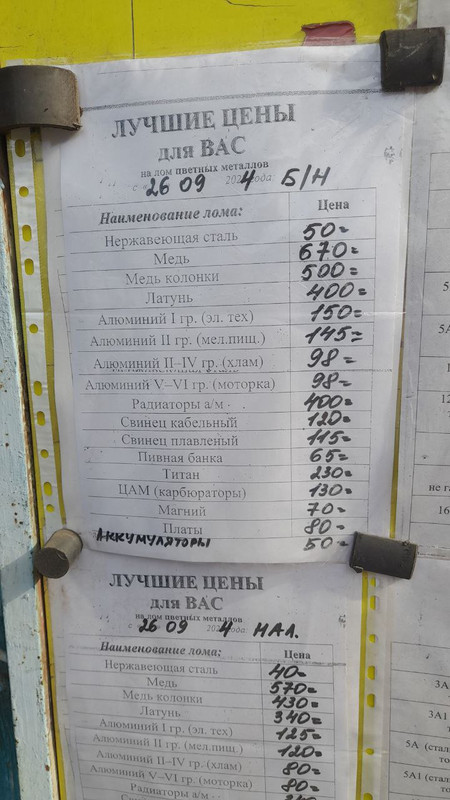 ЛУЧШИЕ ЦЕНЫ
для ВАС
на лом цветных металлов
с «26 09 2024 года Б/Н
Наименование лома: Цена
Нержавеющая сталь 50=
Медь 670=
Медь колонки 500=
Латунь 400=
Алюминий I гр. (эл. тех) 150=
Алюминий II гр. (мел.пищ.) 145=
Алюминий II–IV гр. (хлам) 98=
Алюминий V–VI гр. (моторка) 98=
Радиаторы а/м 400=
Свинец кабельный 120=
Свинец плавленный 115=
Пивная банка 65=
Титан 230=
ЦАМ (карбюраторы) 130=
Магний 70=
Платы 80=
АККУМУЛЯТОРЫ 50=
ЛУЧШИЕ ЦЕНЫ
для ВАС
на лом цветных металлов
с «26 09 2024 года НАЛ.
Наименование лома: Цена
Нержавеющая сталь 40=
Медь 570=
Медь колонки 430=
Латунь 340=
Алюминий I гр. (эл. тех) 125=
Алюминий II гр. (мел.пищ.) 120=
Алюминий II–IV гр. (хлам) 80=
Алюминий V–VI гр. (моторка) 80=
Радиаторы а/м
5А
12
не га
16
3А
3А1
5А (стал
5А1 (стал